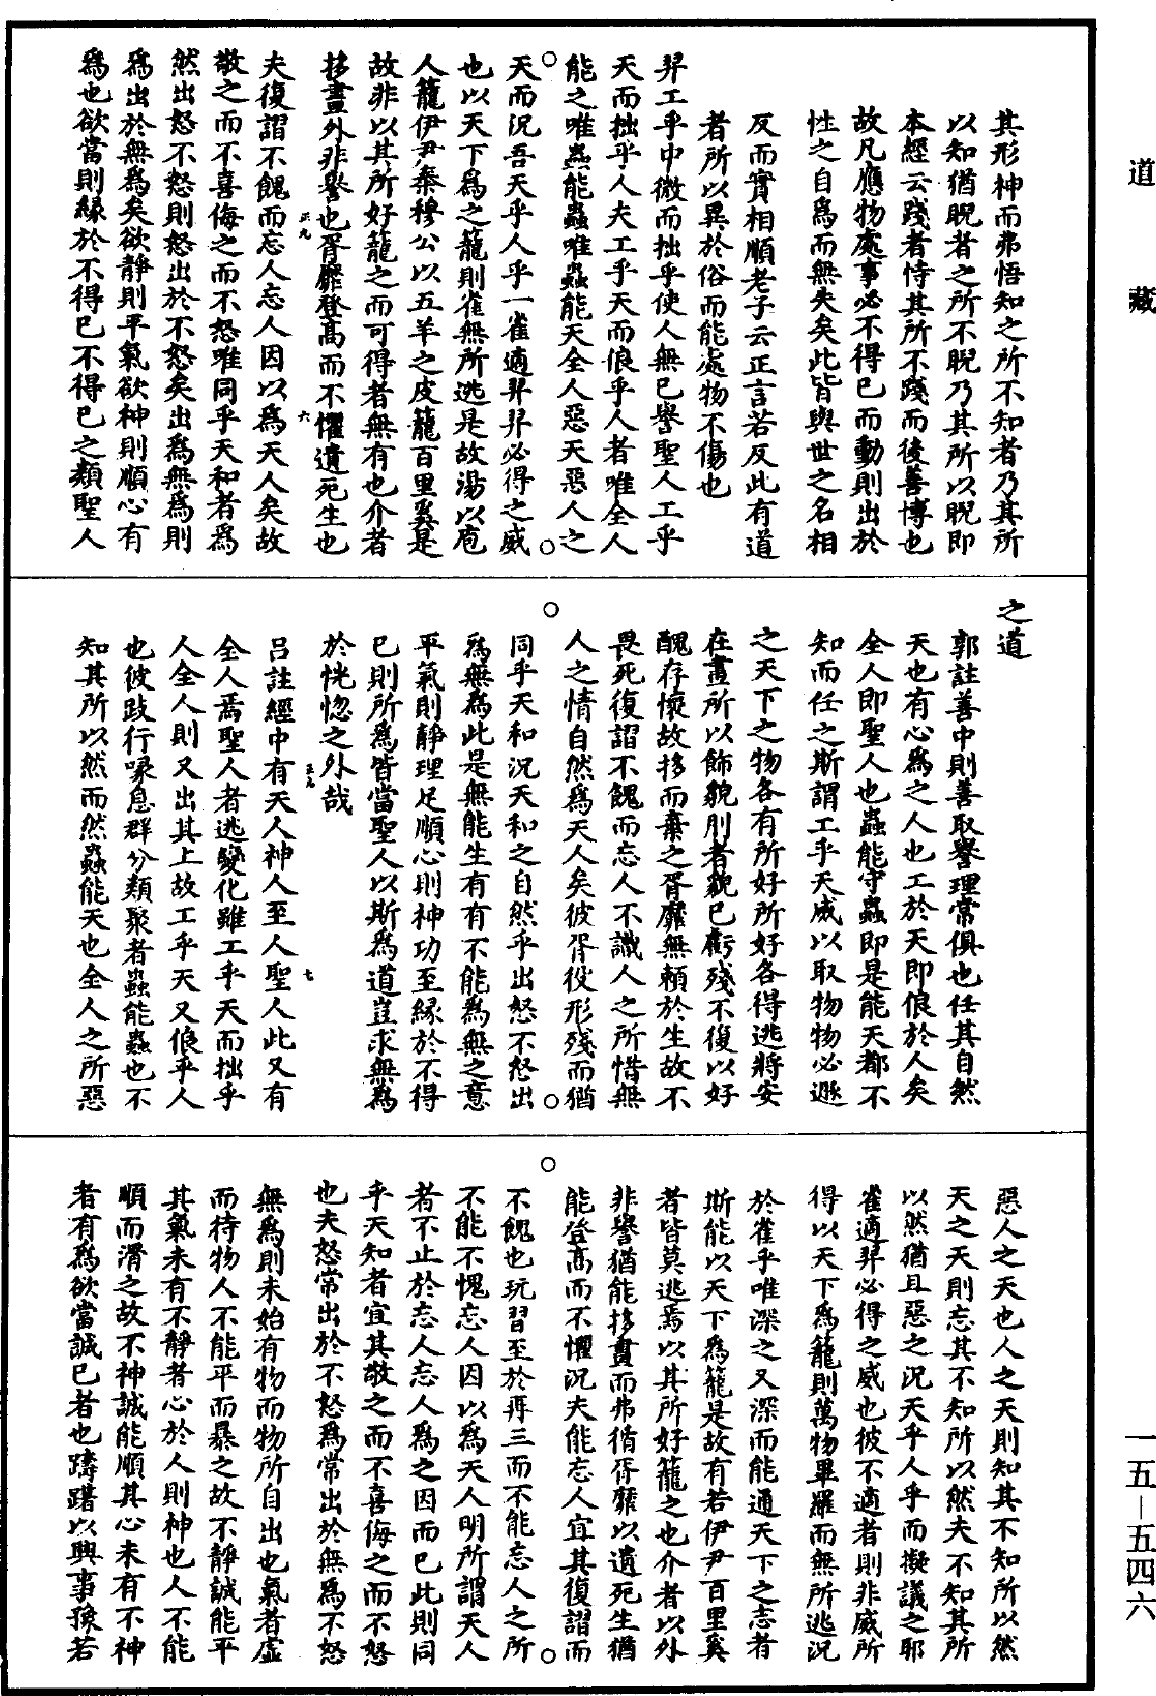 道藏
其形神而弗悟知之所不知者乃其所
以知猶睨者之所不睨乃其所以睨即
本經云踐者恃其所不踐而後善博也
故凡應物處事必不得已而動則出於
性之自爲而無失矣此皆與世之名相
反而實相順老子云正言若反此有道
者所以異於俗而能處物不傷也
羿工乎中微而拙乎使人無已譽聖人工乎
天而拙乎人夫工乎天而俍乎人者唯全人
能之唯蟲能蟲唯蟲能天全人惡天惡人之
天而況吾天乎人乎一雀適羿羿必得之威
也以天下爲之籠則雀無所逃是故湯以庖
人籠伊尹秦穆公以五羊之皮籠百里奚是
故非以其所好籠之而可得者無有也介者
拸畫外非譽也胥靡登高而不懼遺死生也
夫復謵不餽而忘人忘人因以爲天人矣故
敬之而不喜侮之而不怒唯同乎天和者爲
然出怒不怒則怒出於不怒矣出爲無爲則
爲出於無爲矣欲靜則平氣欲神則順心有
爲也欲當則緣於不得已不得已之類聖人
之道
郭註善中則善取譽理常俱也任其自然
天也有心爲之人也工於天即俍於人矣
全人即聖人也蟲能守蟲即是能天都不
知而任之斯謂工乎天威以取物物必逃
之天下之物各有所好所好各得逃將安
在畫所以飾貌刖者貌已虧殘不復以好
醜存懷故拸而棄之胥靡無賴於生故不
畏死復謵不餽而忘人不識人之所惜無
人之情自然爲天人矣彼胥役形殘而猶
同乎天和況天和之自然乎出怒不怒出
爲無爲此是無能生有有不能爲無之意
平氣則靜理足順心則神功至緣於不得
已則所爲皆當聖人以斯爲道豈求無爲
於恍惚之外哉
呂註經中有天人神人至人聖人此又有
全人焉聖人者逃變化雖工乎天而拙乎
人全人則又出其上故工乎天又俍乎人
也彼跂行喙息群分類聚者蟲能蟲也不
知其所以然而然蟲能天也全人之所惡
惡人之天也人之天則知其不知所以然
天之天則忘其不知所以然夫不知其所
以然猶且惡之況天乎人乎而擬議之耶
雀適羿必得之威也彼不適者則非威所
得以天下爲籠則萬物畢羅而無所逃況
於雀乎唯深之又深而能通天下之志者
斯能以天下爲籠是故有若伊尹百里奚
者皆莫逃焉以其所好籠之也介者以外
非譽猶能拸畫而弗循胥靡以遺死生猶
能登高而不懼況夫能忘人宜其復謵而
不餽也玩習至於再三而不能忘人之所
不能不愧忘人因以爲天人明所謂天人
者不止於忘人忘人爲之因而已此則同
乎天知者宜其敬之而不喜侮之而不怒
也夫怒常出於不怒爲常出於無爲不怒
無爲則未始有物而物所自出也氣者虛
而待物人不能平而暴之故不靜誠能平
其氣未有不靜者心於人則神也人不能
順而滑之故不神誠能順其心未有不神
者有爲欲當誠已者也躊躇以興事豫若
一五—五四六